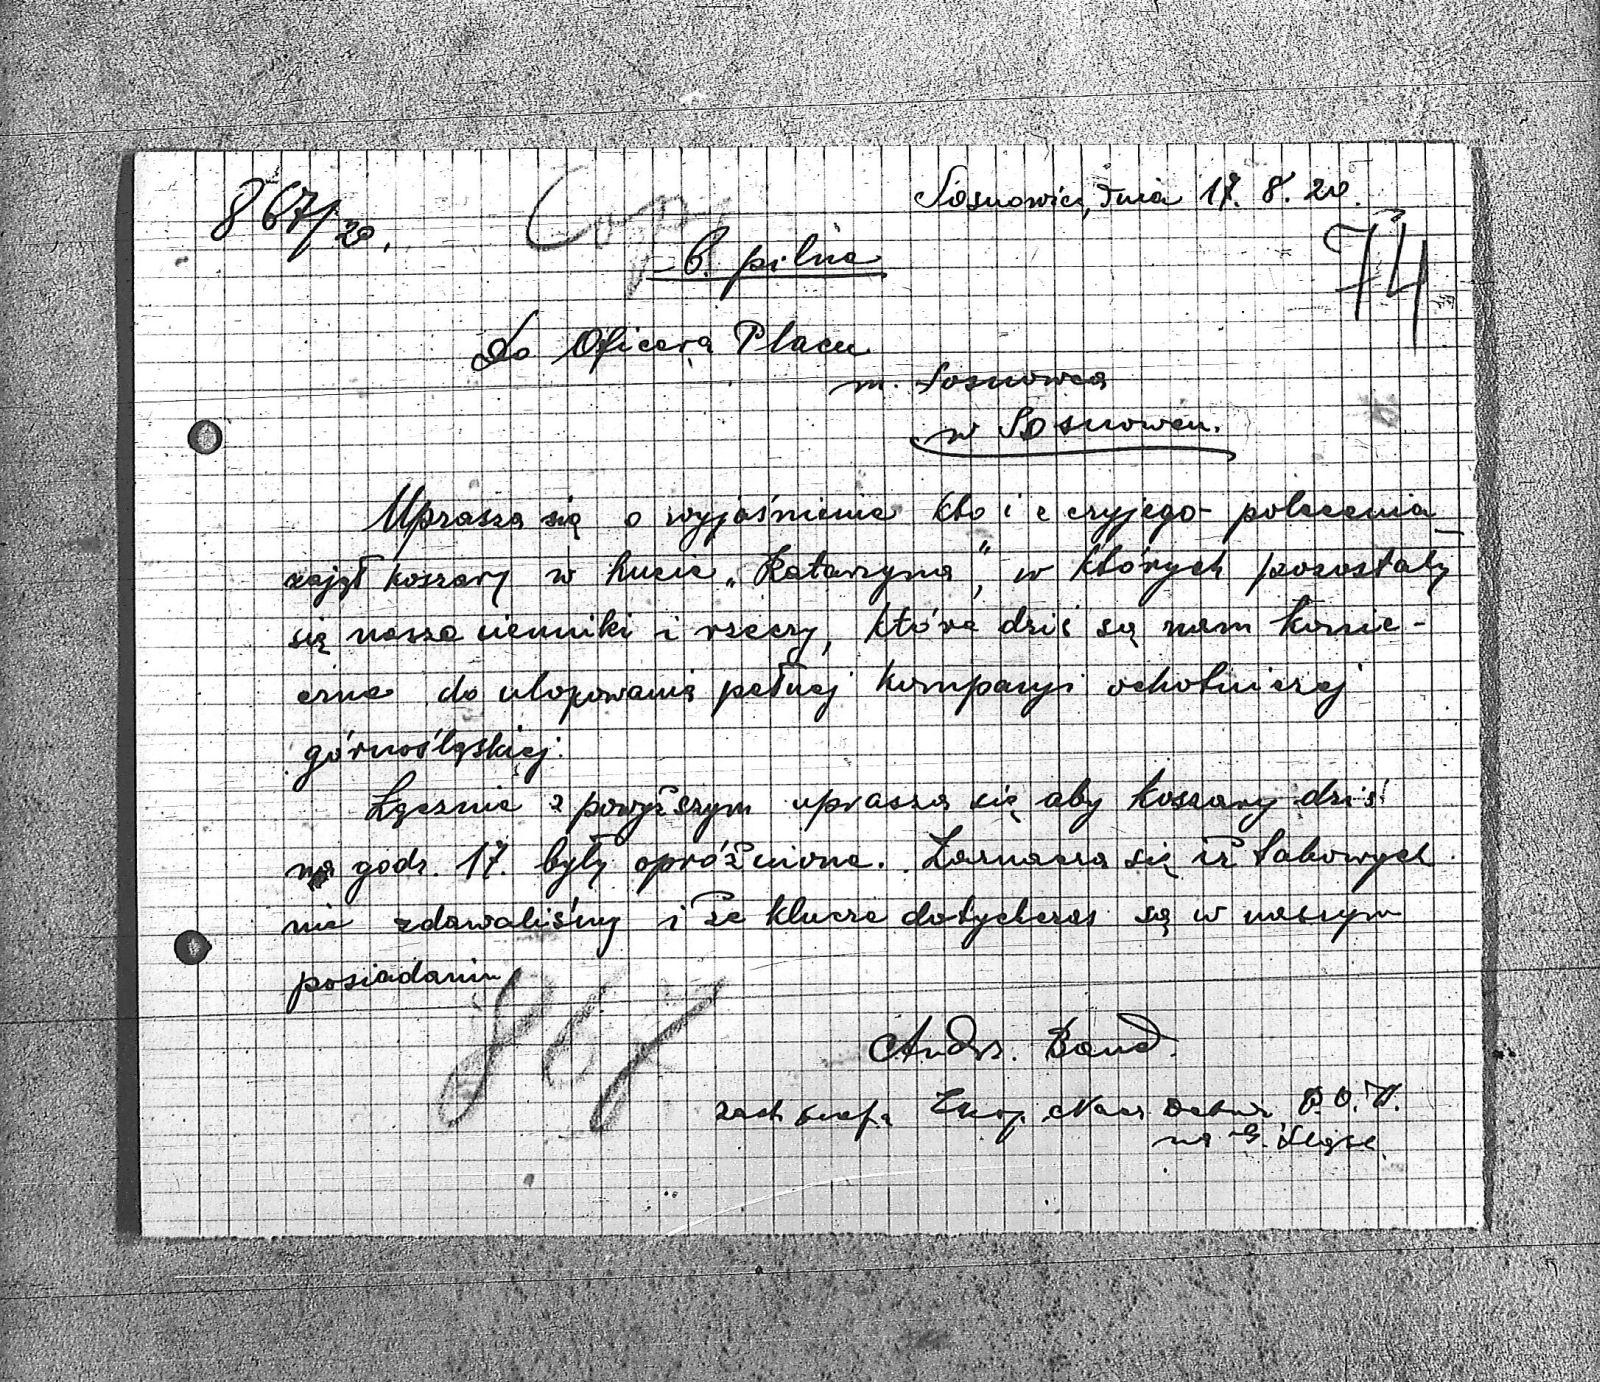 867/20.
Sosnowice, dnia 17. 8. 20.
74
B. pilne
Do Oficera Placu
m. Sosnowca
w Sosnowcu.
Uprasza się o wyjaśnienie kto i z czyjego polecenia
zajął koszary w hucie „Katarzyna", w których pozostały
się nasze sienniki i rzeczy, które dziś są nam konie-
czne do ulokowania pełnej kompanji ochotniczej
górnośląskiej.
Łącznie z powyższym uprasza się aby koszary dziś
na godz. 17. były opróżnione. Zaznacza się iż takowych
nie zdawaliśmy i że klucze dotychczas są w naszym
posiadaniu
Andrz. Band.
zast. szefa Nacz. P.O.W.
na G. Śląsk